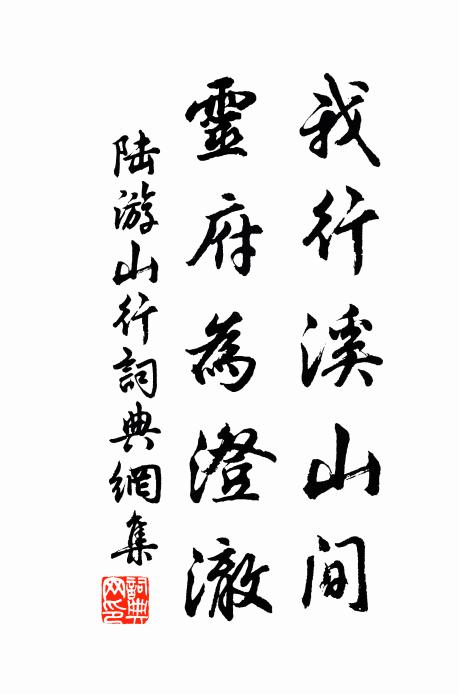 我行溪山間
靈府為澄澈
陆游山行詞典網集
詞典網印